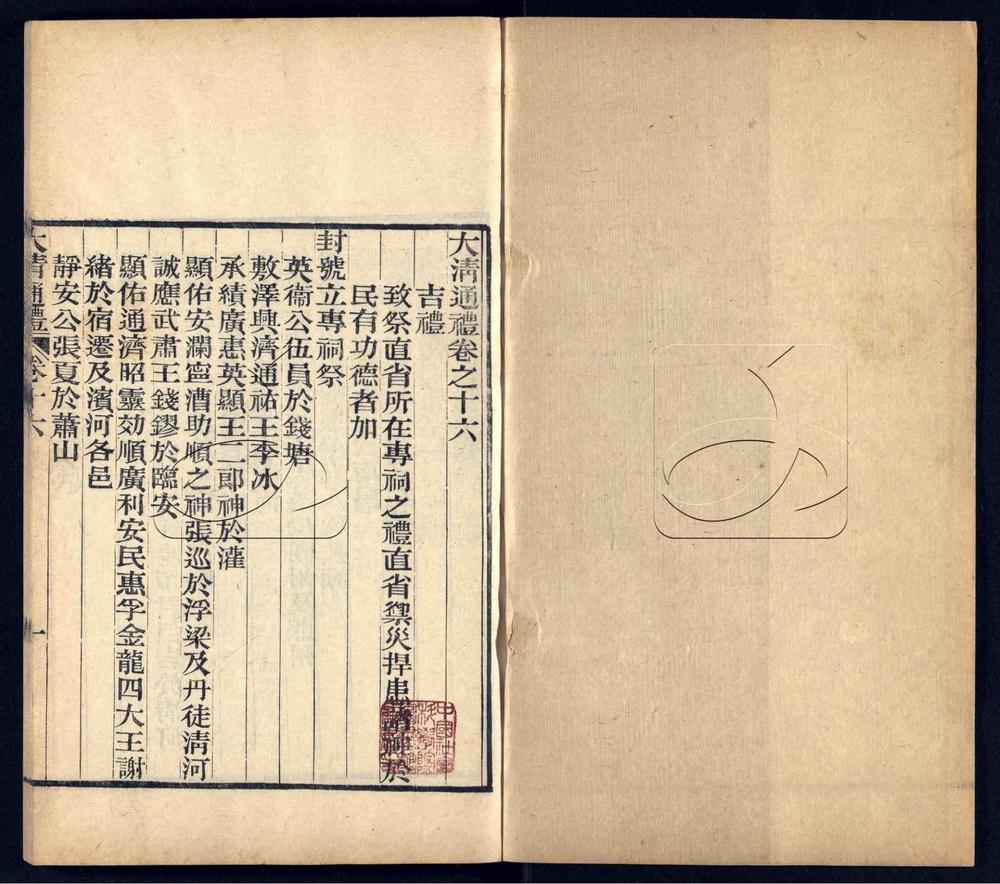 大淸通禮卷之十六
吉禮
致祭直省所在專祠之禮直省禦災捍患諸神於
民有功德者加
封號立專祠祭
英衞公伍員於錢塘
敷澤興濟通祐王李冰
承績廣惠英顯王二郎神於灌
顯佑安瀾寧漕助順之神張巡於浮梁及丹徒淸河
誠應武肅王錢鏐於臨安
顯佑通濟昭靈効順廣利安民惠孚金龍四大王謝
緒於宿遷及濱河各邑
靜安公張夏於蕭山
大淸通禮 卷十六 一